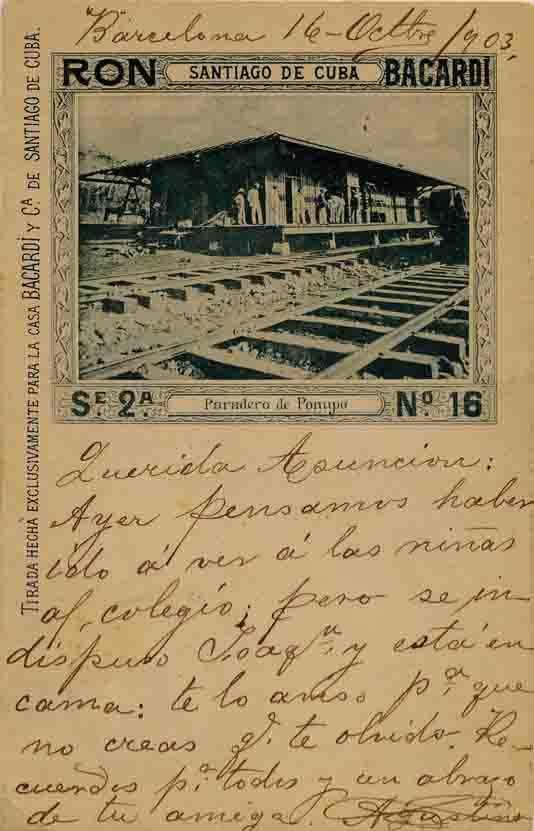 Barcelona 16-Octbre/903.
RON SANTIAGO DE CUBA BACARDÍ
TIRADA HECHA EXCLUSIVAMENTE PARA LA CASA BACARDÍ Y Cª DE SANTIAGO DE CUBA.
SE. 2ª. Paradero de Ponupo Nº 16
Querida Asuncion:
Ayer pensamos haber
ido á ver á las niñas
al colegio; pero se in-
dispuso Joaqn. y está en
cama: te lo aviso pª que
no creas q. te olvido. Re-
cuerdos pª todos y un abrazo
de tu amiga.